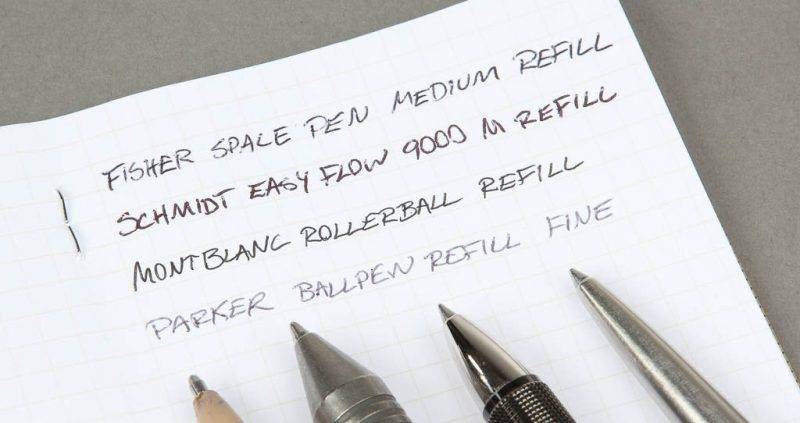 FISHER SPACE PEN MEDIUM REFILL
SCHMIDT EASY FLOW 9000 M REFILL
MONTBLANC ROLLERBALL REFILL
PARKER BALLPEN REFILL FINE